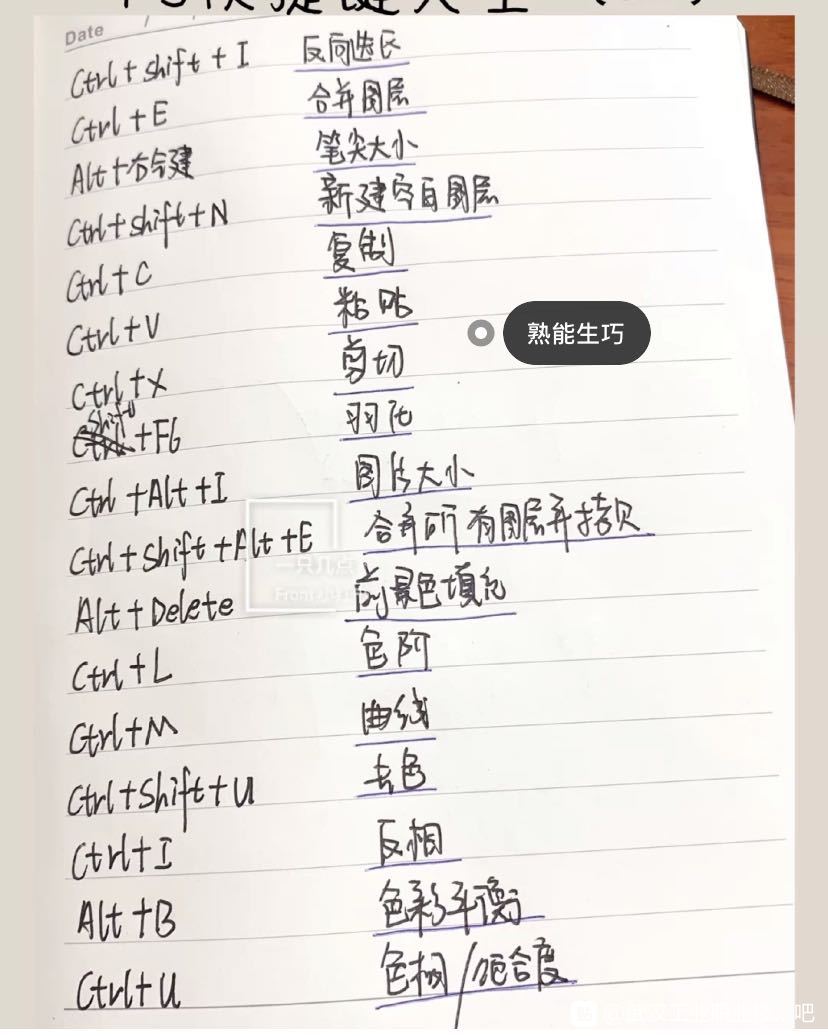 Date / /
Ctrl+shift+I 反向选区
Ctrl+E 合并图层
Alt+右键 笔尖大小
Ctrl+shift+N 新建空白图层
Ctrl+C 复制
Ctrl+V 粘贴
熟能生巧
Ctrl+X 剪切
shift+F6 羽化
Ctrl+Alt+I 图片大小
Ctrl+shift+Alt+E 合并所有图层并拷贝
一只几点
Alt+Delete 前景色填充
Ctrl+L 色阶
Ctrl+M 曲线
Ctrl+Shift+U 去色
Ctrl+I 反相
Alt+B 色彩平衡
Ctrl+U 色相/饱合度